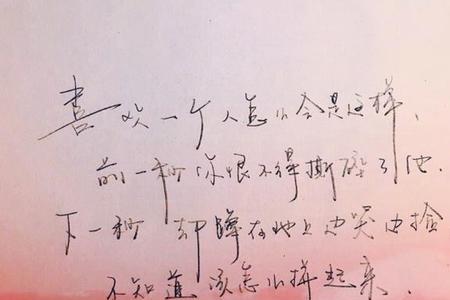 喜欢一个人怎么会是这样、
前一秒你恨不得撕碎了他.
下一秒 却蹲在地上边哭边捡
不知道该怎么拼起来.